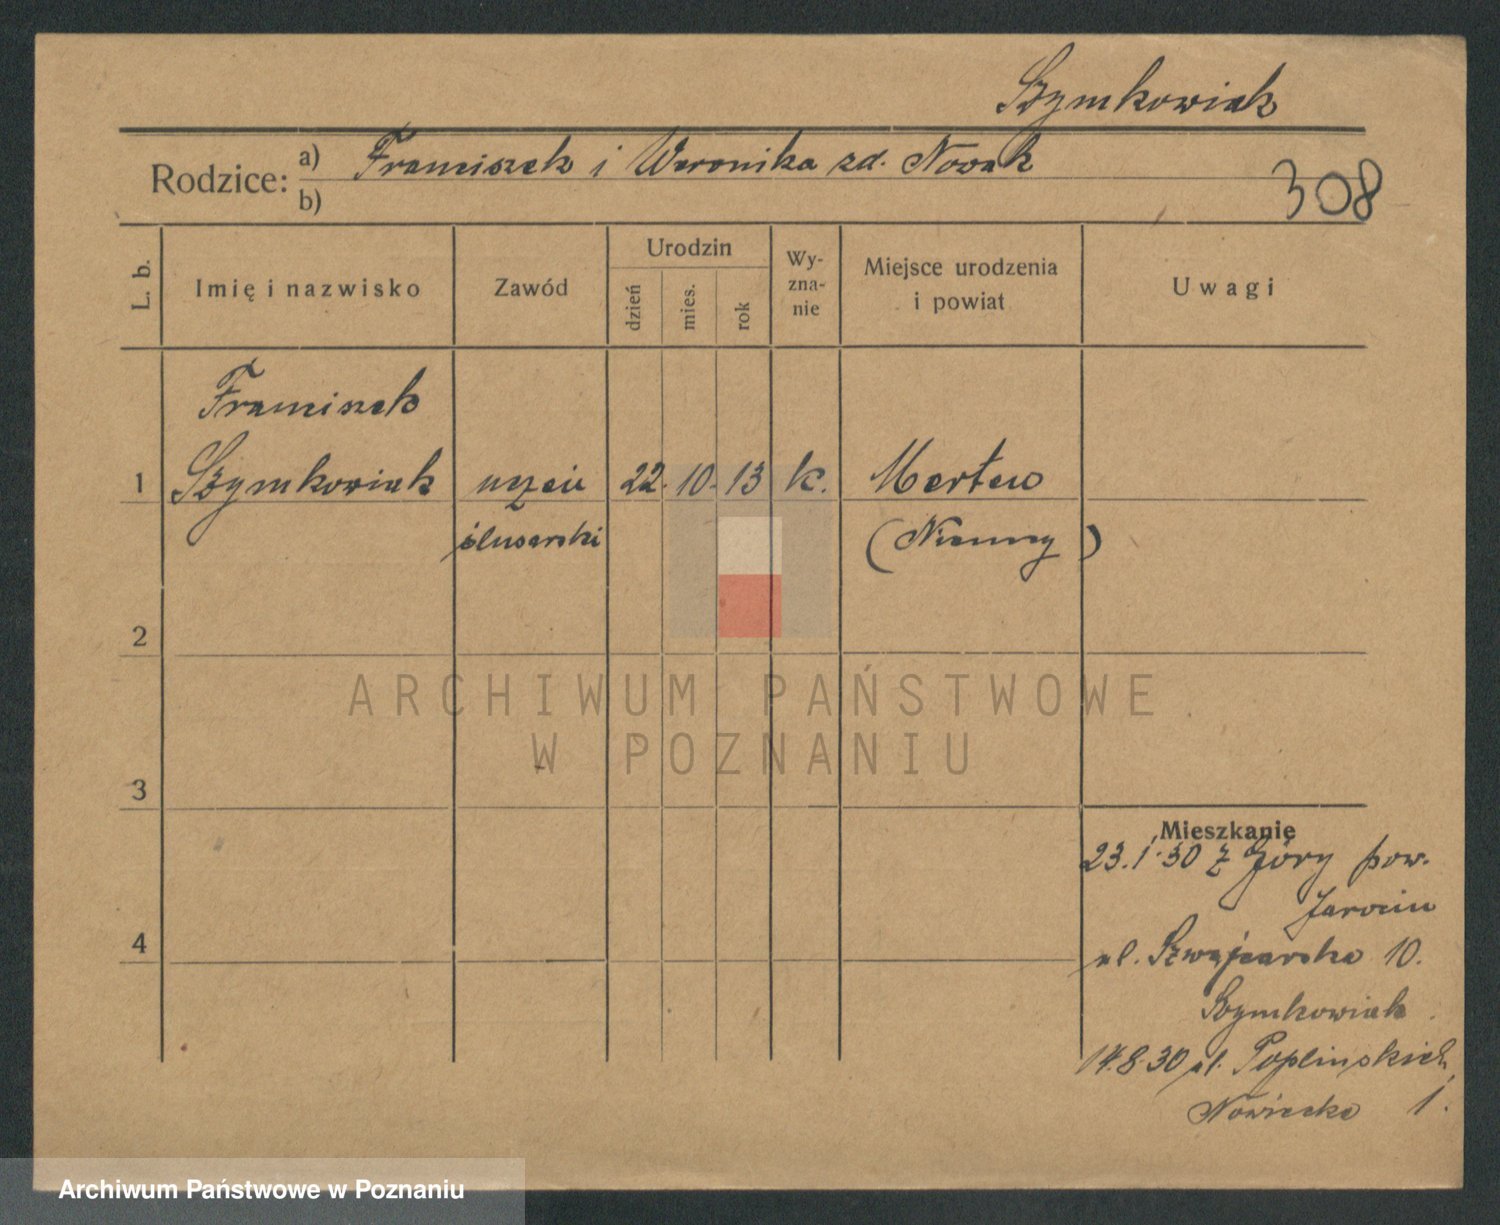 Szymkowiak
Rodzice: a) Franciszek i Weronika zd. Nowak
b)
308
L. b.
Imię i nazwisko
Zawód
Urodzin
dzień
mies.
rok
Wy-
zna-
nie
Miejsce urodzenia
i powiat
Uwagi
Franciszek
1 Szymkowiak uczeń 22. 10. 13 k. Merten
ślusarski (Niemcy)
2
3
4
ARCHIWUM PAŃSTWOWE
W POZNANIU
Mieszkanie
23.1.30 z Góry pow.
Jarocin
ul. Szwajcarska 10.
Szymkowiak
14.8.30 ul. Poplinskich
Nowicka 1.
Archiwum Państwowe w Poznaniu